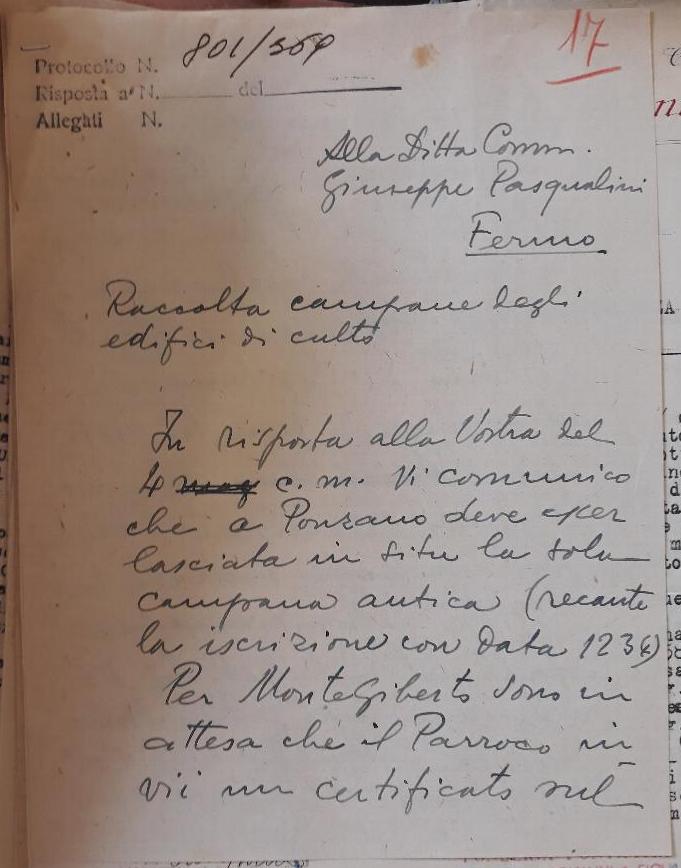 17
Protocollo N. 801/369
Risposta a N. del
Alleghti N.
Alla Ditta Comm.
Giuseppe Pasqualini
Fermo
Raccolta campane degli
edifici di culto
In risposta alla Vostra del
4 mag c. m. Vi comunico
che a Ponzano deve esser
lasciata in situ la sola
campana antica (recante
la iscrizione con data 1234)
Per MonteGiberto sono in
attesa che il Parroco in
vii un certificato sul